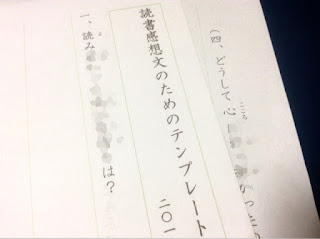 (四、どうして心
こころ
読書感想文のためのテンプレート
二〇一
一、読み は？